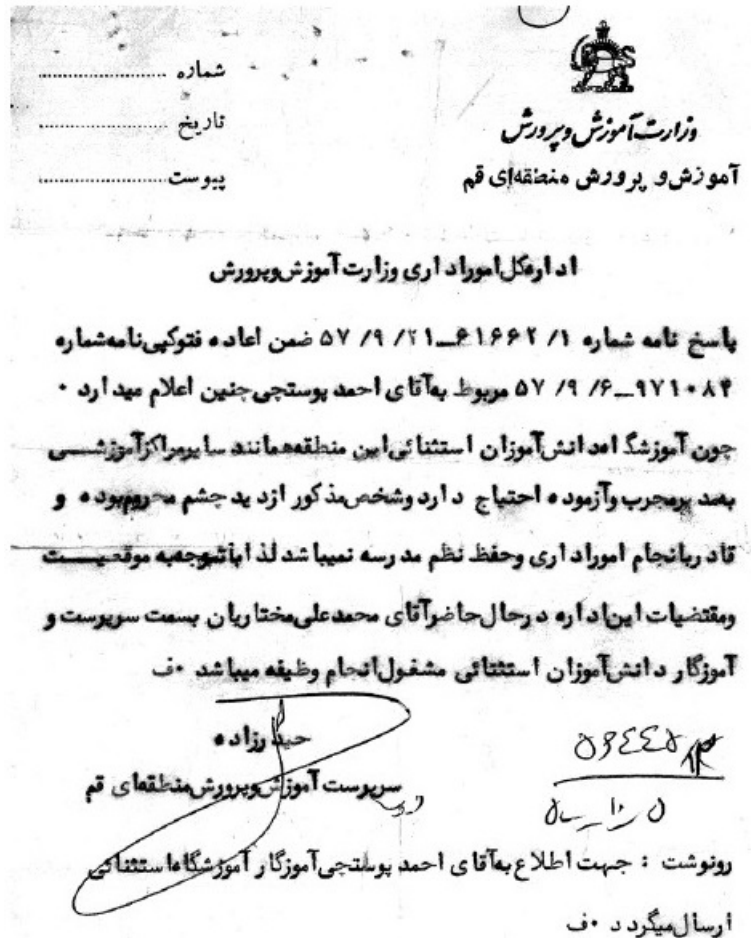 شماره ....................
تاریخ ....................
پیوست ....................
وزارت آموزش و پرورش
آموزش و پرورش منطقه‌ای قم
اداره کل امور اداری وزارت آموزش و پرورش
پاسخ نامه شماره ۶۱۶۶۲/۱ــ۲۱/ ۹/ ۵۷ ضمن اعاده فتوکپی نامه شماره
۹۷۱۰۸۴ــ۶/ ۹/ ۵۷ مربوط به آقای احمد پوستچی چنین اعلام میدارد ۰
چون آموزشگاه دانش‌آموزان استثنائی این منطقه همانند سایر مراکز آموزشــی
به مدیر مجرب و آزموده احتیاج دارد و شخص مذکور از دید چشم محروم بوده و
قادر بانجام امور اداری و حفظ نظم مدرسه نمیباشد لذا با توجه به موقعیــت
و مقتضیات این اداره در حال حاضر آقای محمد علی مختاریان بسمت سرپرست و
آموزگار دانش‌آموزان استثنائی مشغول انجام وظیفه میباشد ۰ف
حیدرزاده
سرپرست آموزش و پرورش منطقه‌ای قم
رونوشت : جهت اطلاع به آقای احمد پوستچی آموزگار آموزشگاه استثنائی
ارسال میگردد ۰ف